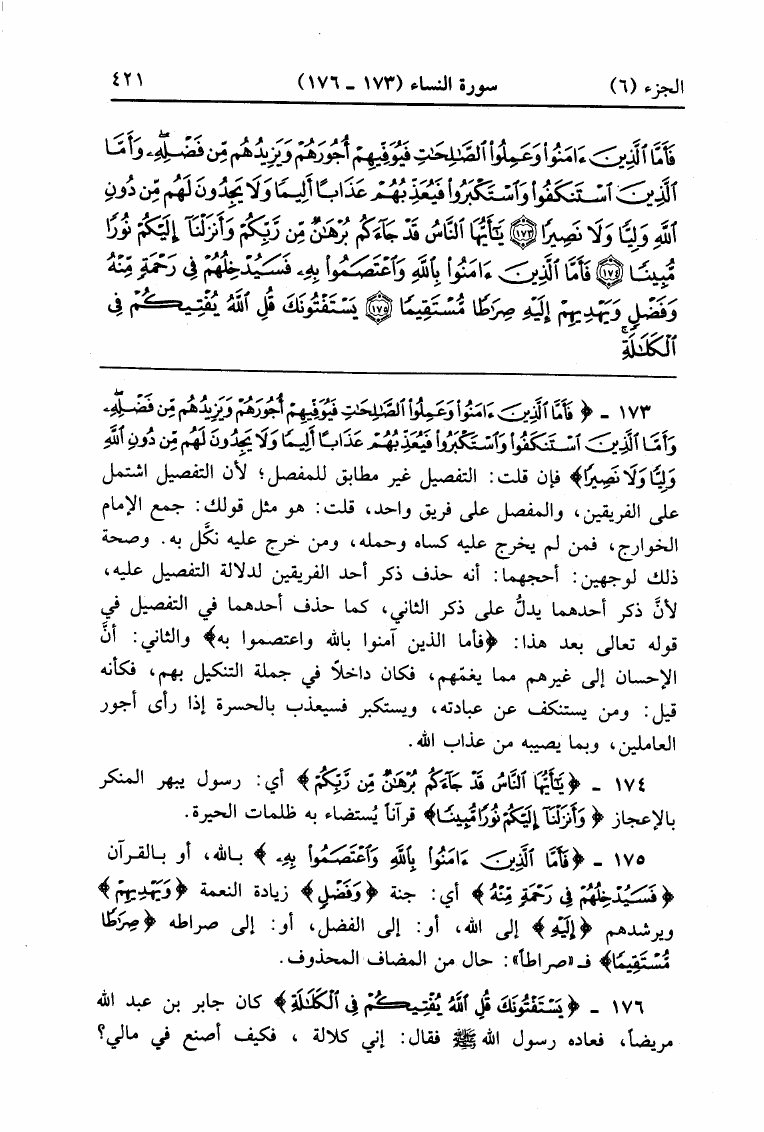 الجزء (٦) سورة النساء (١٧٣ ـ ١٧٦) ٤٢١
فَأَمَّا ٱلَّذِينَ ءَامَنُوا۟ وَعَمِلُوا۟ ٱلصَّٰلِحَٰتِ فَيُوَفِّيهِمْ أُجُورَهُمْ وَيَزِيدُهُم مِّن فَضْلِهِۦ ۖ وَأَمَّا
ٱلَّذِينَ ٱسْتَنكَفُوا۟ وَٱسْتَكْبَرُوا۟ فَيُعَذِّبُهُمْ عَذَابًا أَلِيمًا وَلَا يَجِدُونَ لَهُم مِّن دُونِ
ٱللَّهِ وَلِيًّا وَلَا نَصِيرًا ۝١٧٣ يَٰٓأَيُّهَا ٱلنَّاسُ قَدْ جَآءَكُم بُرْهَٰنٌ مِّن رَّبِّكُمْ وَأَنزَلْنَآ إِلَيْكُمْ نُورًا
مُّبِينًا ۝١٧٤ فَأَمَّا ٱلَّذِينَ ءَامَنُوا۟ بِٱللَّهِ وَٱعْتَصَمُوا۟ بِهِۦ فَسَيُدْخِلُهُمْ فِى رَحْمَةٍ مِّنْهُ
وَفَضْلٍ وَيَهْدِيهِمْ إِلَيْهِ صِرَٰطًا مُّسْتَقِيمًا ۝١٧٥ يَسْتَفْتُونَكَ قُلِ ٱللَّهُ يُفْتِيكُمْ فِى
ٱلْكَلَٰلَةِ ۚ
١٧٣ ـ ﴿فَأَمَّا ٱلَّذِينَ ءَامَنُوا۟ وَعَمِلُوا۟ ٱلصَّٰلِحَٰتِ فَيُوَفِّيهِمْ أُجُورَهُمْ وَيَزِيدُهُم مِّن فَضْلِهِۦ ۖ
وَأَمَّا ٱلَّذِينَ ٱسْتَنكَفُوا۟ وَٱسْتَكْبَرُوا۟ فَيُعَذِّبُهُمْ عَذَابًا أَلِيمًا وَلَا يَجِدُونَ لَهُم مِّن دُونِ ٱللَّهِ
وَلِيًّا وَلَا نَصِيرًا﴾ فإن قلت: التفصيل غير مطابق للمفصل؛ لأن التفصيل اشتمل
على الفريقين، والمفصل على فريق واحد، قلت: هو مثل قولك: جمع الإمام
الخوارج، فمن لم يخرج عليه كساه وحمله، ومن خرج عليه نكَّل به. وصحة
ذلك لوجهين: أحجهما: أنه حذف ذكر أحد الفريقين لدلالة التفصيل عليه،
لأنَّ ذكر أحدهما يدلُّ على ذكر الثاني، كما حذف أحدهما في التفصيل في
قوله تعالى بعد هذا: ﴿فأما الذين آمنوا بالله واعتصموا به﴾ والثاني: أنَّ
الإحسان إلى غيرهم مما يغمّهم، فكان داخلاً في جملة التنكيل بهم، فكأنه
قيل: ومن يستنكف عن عبادته، ويستكبر فسيعذب بالحسرة إذا رأى أجور
العاملين، وبما يصيبه من عذاب الله.
١٧٤ ـ ﴿يَٰٓأَيُّهَا ٱلنَّاسُ قَدْ جَآءَكُم بُرْهَٰنٌ مِّن رَّبِّكُمْ﴾ أي: رسول يبهر المنكر
بالإعجاز ﴿وَأَنزَلْنَآ إِلَيْكُمْ نُورًا مُّبِينًا﴾ قرآناً يُستضاء به ظلمات الحيرة.
١٧٥ ـ ﴿فَأَمَّا ٱلَّذِينَ ءَامَنُوا۟ بِٱللَّهِ وَٱعْتَصَمُوا۟ بِهِۦ﴾ بالله، أو بالقرآن
﴿فَسَيُدْخِلُهُمْ فِى رَحْمَةٍ مِّنْهُ﴾ أي: جنة ﴿وَفَضْلٍ﴾ زيادة النعمة ﴿وَيَهْدِيهِمْ﴾
ويرشدهم ﴿إِلَيْهِ﴾ إلى الله، أو: إلى الفضل، أو: إلى صراطه ﴿صِرَٰطًا
مُّسْتَقِيمًا﴾ فـ «صراطاً»: حال من المضاف المحذوف.
١٧٦ ـ ﴿يَسْتَفْتُونَكَ قُلِ ٱللَّهُ يُفْتِيكُمْ فِى ٱلْكَلَٰلَةِ﴾ كان جابر بن عبد الله
مريضاً، فعاده رسول الله ﷺ فقال: إني كلالة ، فكيف أصنع في مالي؟